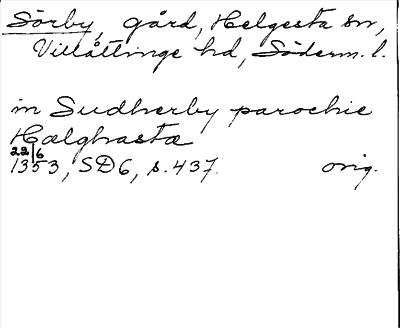 Sörby, gård, Helgesta sn,
Villåttinge hd, Söderm. l.
in Sudherby parochie
Hælghastæ
22/6
1353, SD6, s. 437. orig.